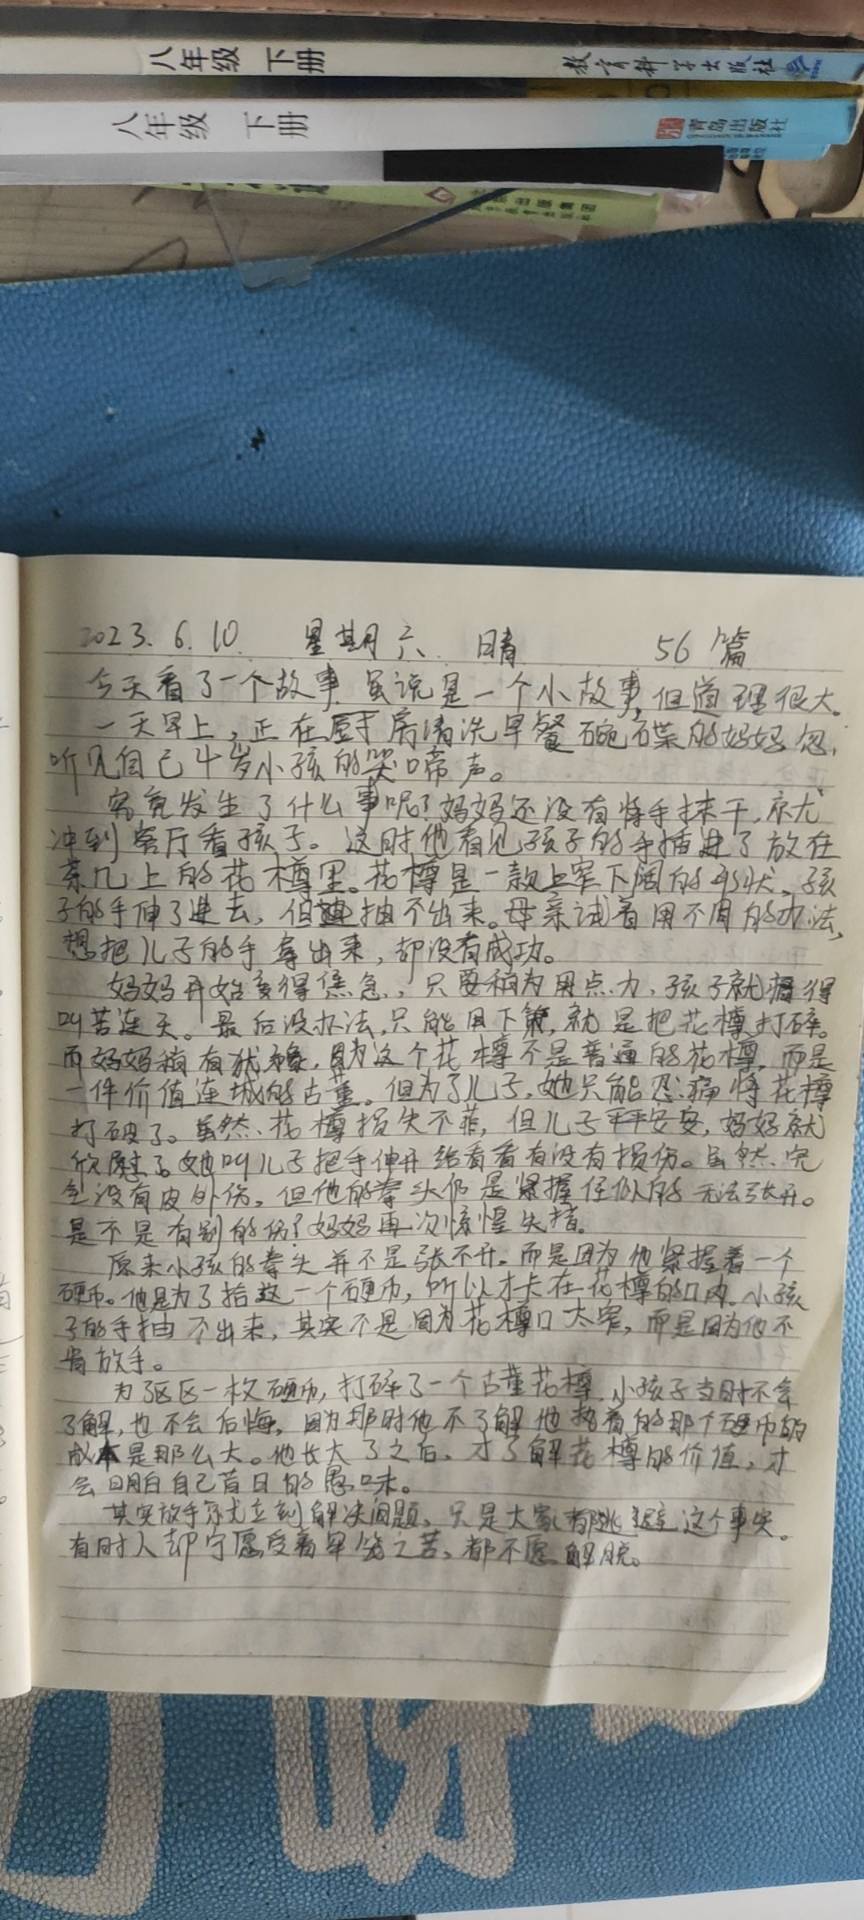 八年级 下册 教育科学出版社
八年级 下册 青岛出版社
2023.6.10 星期六 晴 56篇
今天看了一个故事,虽说是一个小故事,但道理很大。
一天早上,正在厨房清洗早餐碗碟的妈妈忽,
听见自己4岁小孩的哭啼声。
究竟发生了什么事呢?妈妈还没有将手抹干,就
冲到客厅看孩子。这时他看见孩子的手插进了放在
茶几上的花樽里。花樽是一款上窄下阔的形状,孩
子的手伸了进去,但抽不出来。母亲试着用不同的办法,
想把儿子的手拿出来,都没有成功。
妈妈开始变得焦急,只要稍为用点力,孩子就痛得
叫苦连天。最后没办法,只能用下策,就是把花樽打碎。
而妈妈稍有犹豫,因为这个花樽不是普通的花樽,而是
一件价值连城的古董。但为了儿子,她只能忍痛将花樽
打破了。虽然,花樽损失不菲,但儿子平平安安,妈妈就
欣慰了她叫儿子把手伸开给看看有没有损伤。虽然完
全没有皮外伤,但他的拳头仍是紧握住似的无法张开。
是不是有别的伤?妈妈再次惊惶失措。
原来小孩的拳头并不是张不开。而是因为他紧握着一个
硬币。他是为了拾这一个硬币,所以才卡在花樽的口内。小孩
子的手抽不出来,其实不是因为花樽口太窄,而是因为他不
肯放手。
为了区区一枚硬币,打碎了一个古董花樽,小孩子当时不会
了解,也不会后悔,因为那时他不了解他拾着的那个硬币的
成本是那么大。他长大了之后,才了解花樽的价值,才
会明白自己昔日的愚昧。
其实放手就立刻解决问题,只是大家都逃避这个事实。
有时人却宁愿受着之苦,都不愿解脱。